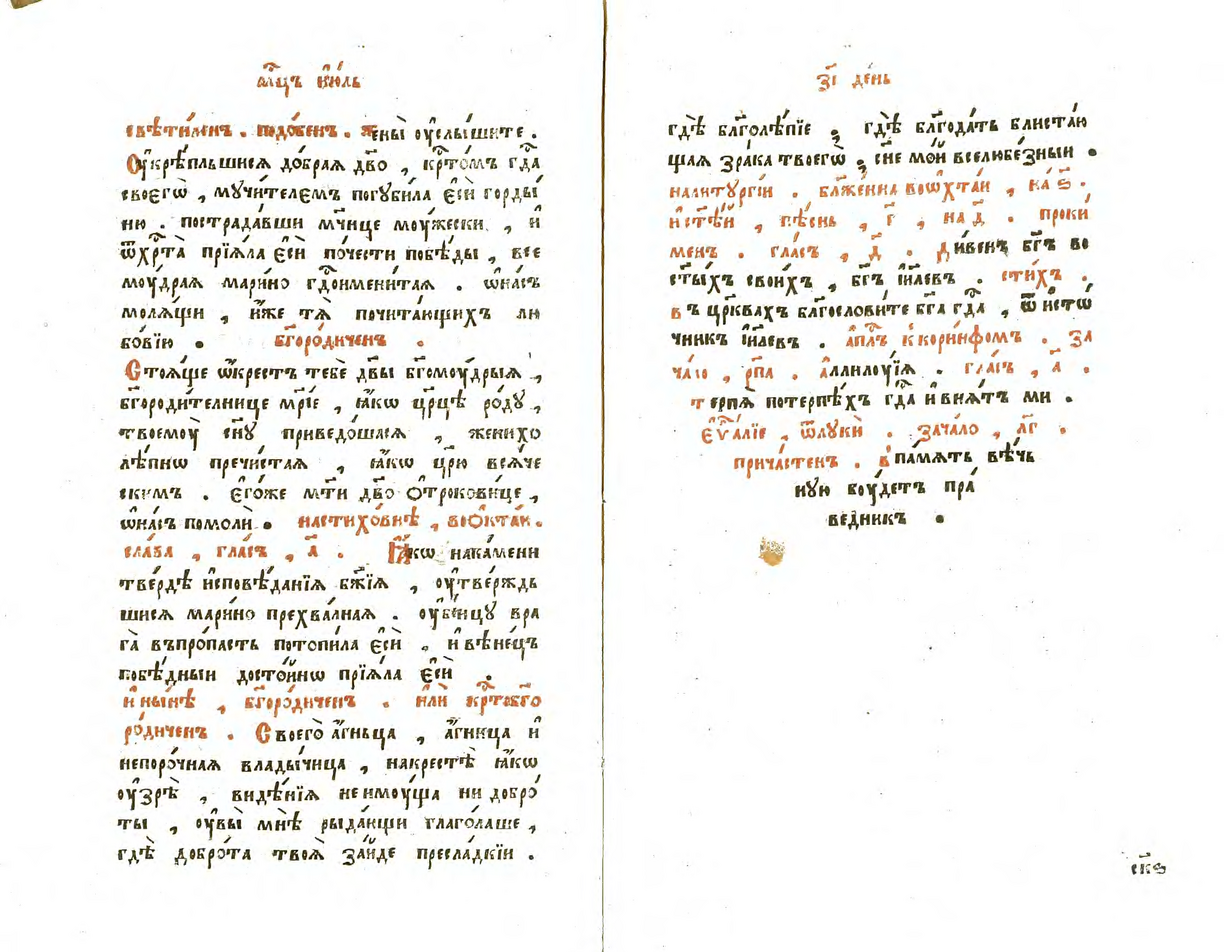 мⷭ҇цъ і҆ю́ль
свѣти́ленъ . подо́бенъ . жены̀ ᲂу҆слы́шите .
Оу҆крѣпльшисѧ до́браѧ дв҃о , крⷭ҇то́мъ гдⷭ҇а
своегѡ̀ , мꙋчи́телемъ погꙋби́ла є҆сѝ горды́
ню . пострада́вши мч҃нице моу́жески , и҆
ѿхрⷭ҇та̀ прїѧ́ла є҆сѝ по́чести побѣ́ды , все
моу́драѧ мари́но гдⷭ҇оимени́таѧ . ѡ҆на́съ
молѧ́щи , и҆́же тѧ̀ почита́ющихъ лю
бо́вїю . бг҃оро́диченъ .
Стоѧ́ще ѡ҆́крестъ тебѐ дв҃ы бг҃омоу́дрыѧ ,
бг҃ороди́телнице мр҃і́е , ꙗ҆́кѡ цр҃цѣ ро́дꙋ ,
твоемоу̀ сн҃ꙋ приведо́шасѧ , женихо
лѣ́пнѡ пречи́стаѧ , ꙗ҆́кѡ цр҃ю̀ всѧ́че
скимъ . є҆го́же мт҃и дв҃о Ѻ҆трокови́це ,
ѡ҆на́съ помолѝ . настихо́внѣ , воѻ҆кта́и .
сла́ва , гла́съ , а҃ . Ꙗ҆́кѡ нака́мени
тве́рдѣ и҆сповѣ́данїѧ бж҃їѧ , ᲂу҆тве́рждь
шисѧ мари́но прехва́лнаѧ . ᲂу҆бі́йцꙋ вра
га̀ въпро́пасть потопи́ла є҆сѝ . и҆ вѣне́цъ
побѣ́дныи досто́йнѡ прїѧ́ла є҆сѝ .
и҆ ны́нѣ , бг҃оро́диченъ . и҆лѝ крⷭ҇тобг҃о
ро́диченъ . Своего̀ а҆́гньца , а҆́гница и҆
непоро́чнаѧ влады́чица , накрестѣ̀ ꙗ҆́кѡ
ᲂу҆зрѣ̀ , ви́дѣнїѧ неимоу́ща ни добро
ты̀ , ᲂу҆вы̀ мнѣ̀ рыда́ющи глаго́лаше ,
гдѣ̀ добро́та твоѧ̀ за́йде пресла́дкїи .
з҃і де́нь
гдѣ̀ бл҃голѣ́пїе , гдѣ̀ бл҃года́ть блиста́ю
щаѧ зра́ка твоегѡ̀ , сн҃е мо́й вселюбе́зныи .
налитꙋргі́и . бл҃же́нна воѡ҆хта́и , на̀ ѕ҃ .
и҆ ст҃ѣ́й , пѣ́снь , г҃ , на д҃ . проки́
менъ . гла́съ , д҃ . Ди́венъ бг҃ъ во
ст҃ы́хъ свои́хъ , бг҃ъ і҆и҃левъ . сти́хъ .
въ цр҃квахъ благослови́те бг҃а гдⷭ҇а , ѿ и҆стѡ́
чникъ і҆и҃левъ . а҆пⷭ҇лъ к коринфомъ . за
ча́ло , рп҃а . а҆ллилоу́їѧ . гла́съ , а҃ .
терпѧ̀ потерпѣ́хъ гдⷭ҇а и҆ внѧ́тъ ми .
є҆ѵⷢ҇а́лїе , ѿлꙋкѝ . зача́ло , лг҃ .
прича́стенъ . в̾ па́мѧть вѣ́чь
нꙋю боу́детъ пра́
ведникъ .
ск҃ѕ